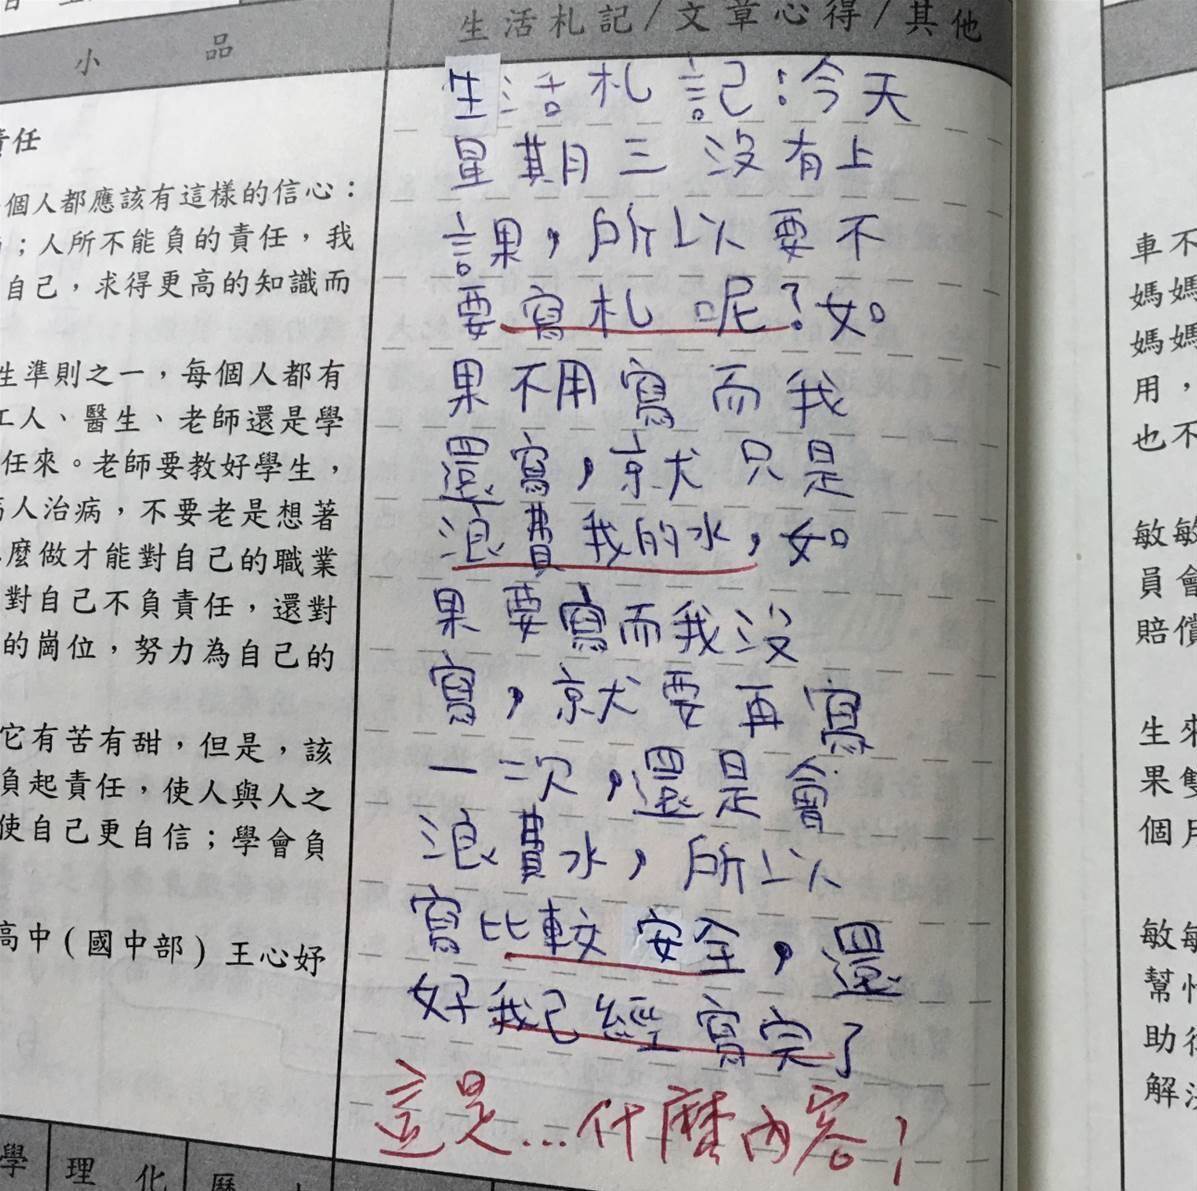 小 品
生活札記/文章心得/其他
責任
個人都應該有這樣的信心：
；人所不能負的責任，我
自己，求得更高的知識而
生準則之一，每個人都有
工人、醫生、老師還是學
任來。老師要教好學生，
人治病，不要老是想著
麼做才能對自己的職業
對自己不負責任，還對
的崗位，努力為自己的
它有苦有甜，但是，該
負起責任，使人與人之
使自己更自信；學會負
高中（國中部）王心妤
生活札記：今天
星期三沒有上
課，所以要不
要寫札呢？如
果不用寫而我
還寫，就只是
浪費我的水，如
果要寫而我沒
寫，就要再寫
一次，還是會
浪費水，所以
寫比較安全，還
好我已經寫完了
這是...什麼內容！
學 理化 歷
車不
媽媽
媽媽
用，
也不
敏敏
員會
賠償
生來
果雙
個月
敏敏
幫忙
助
解決